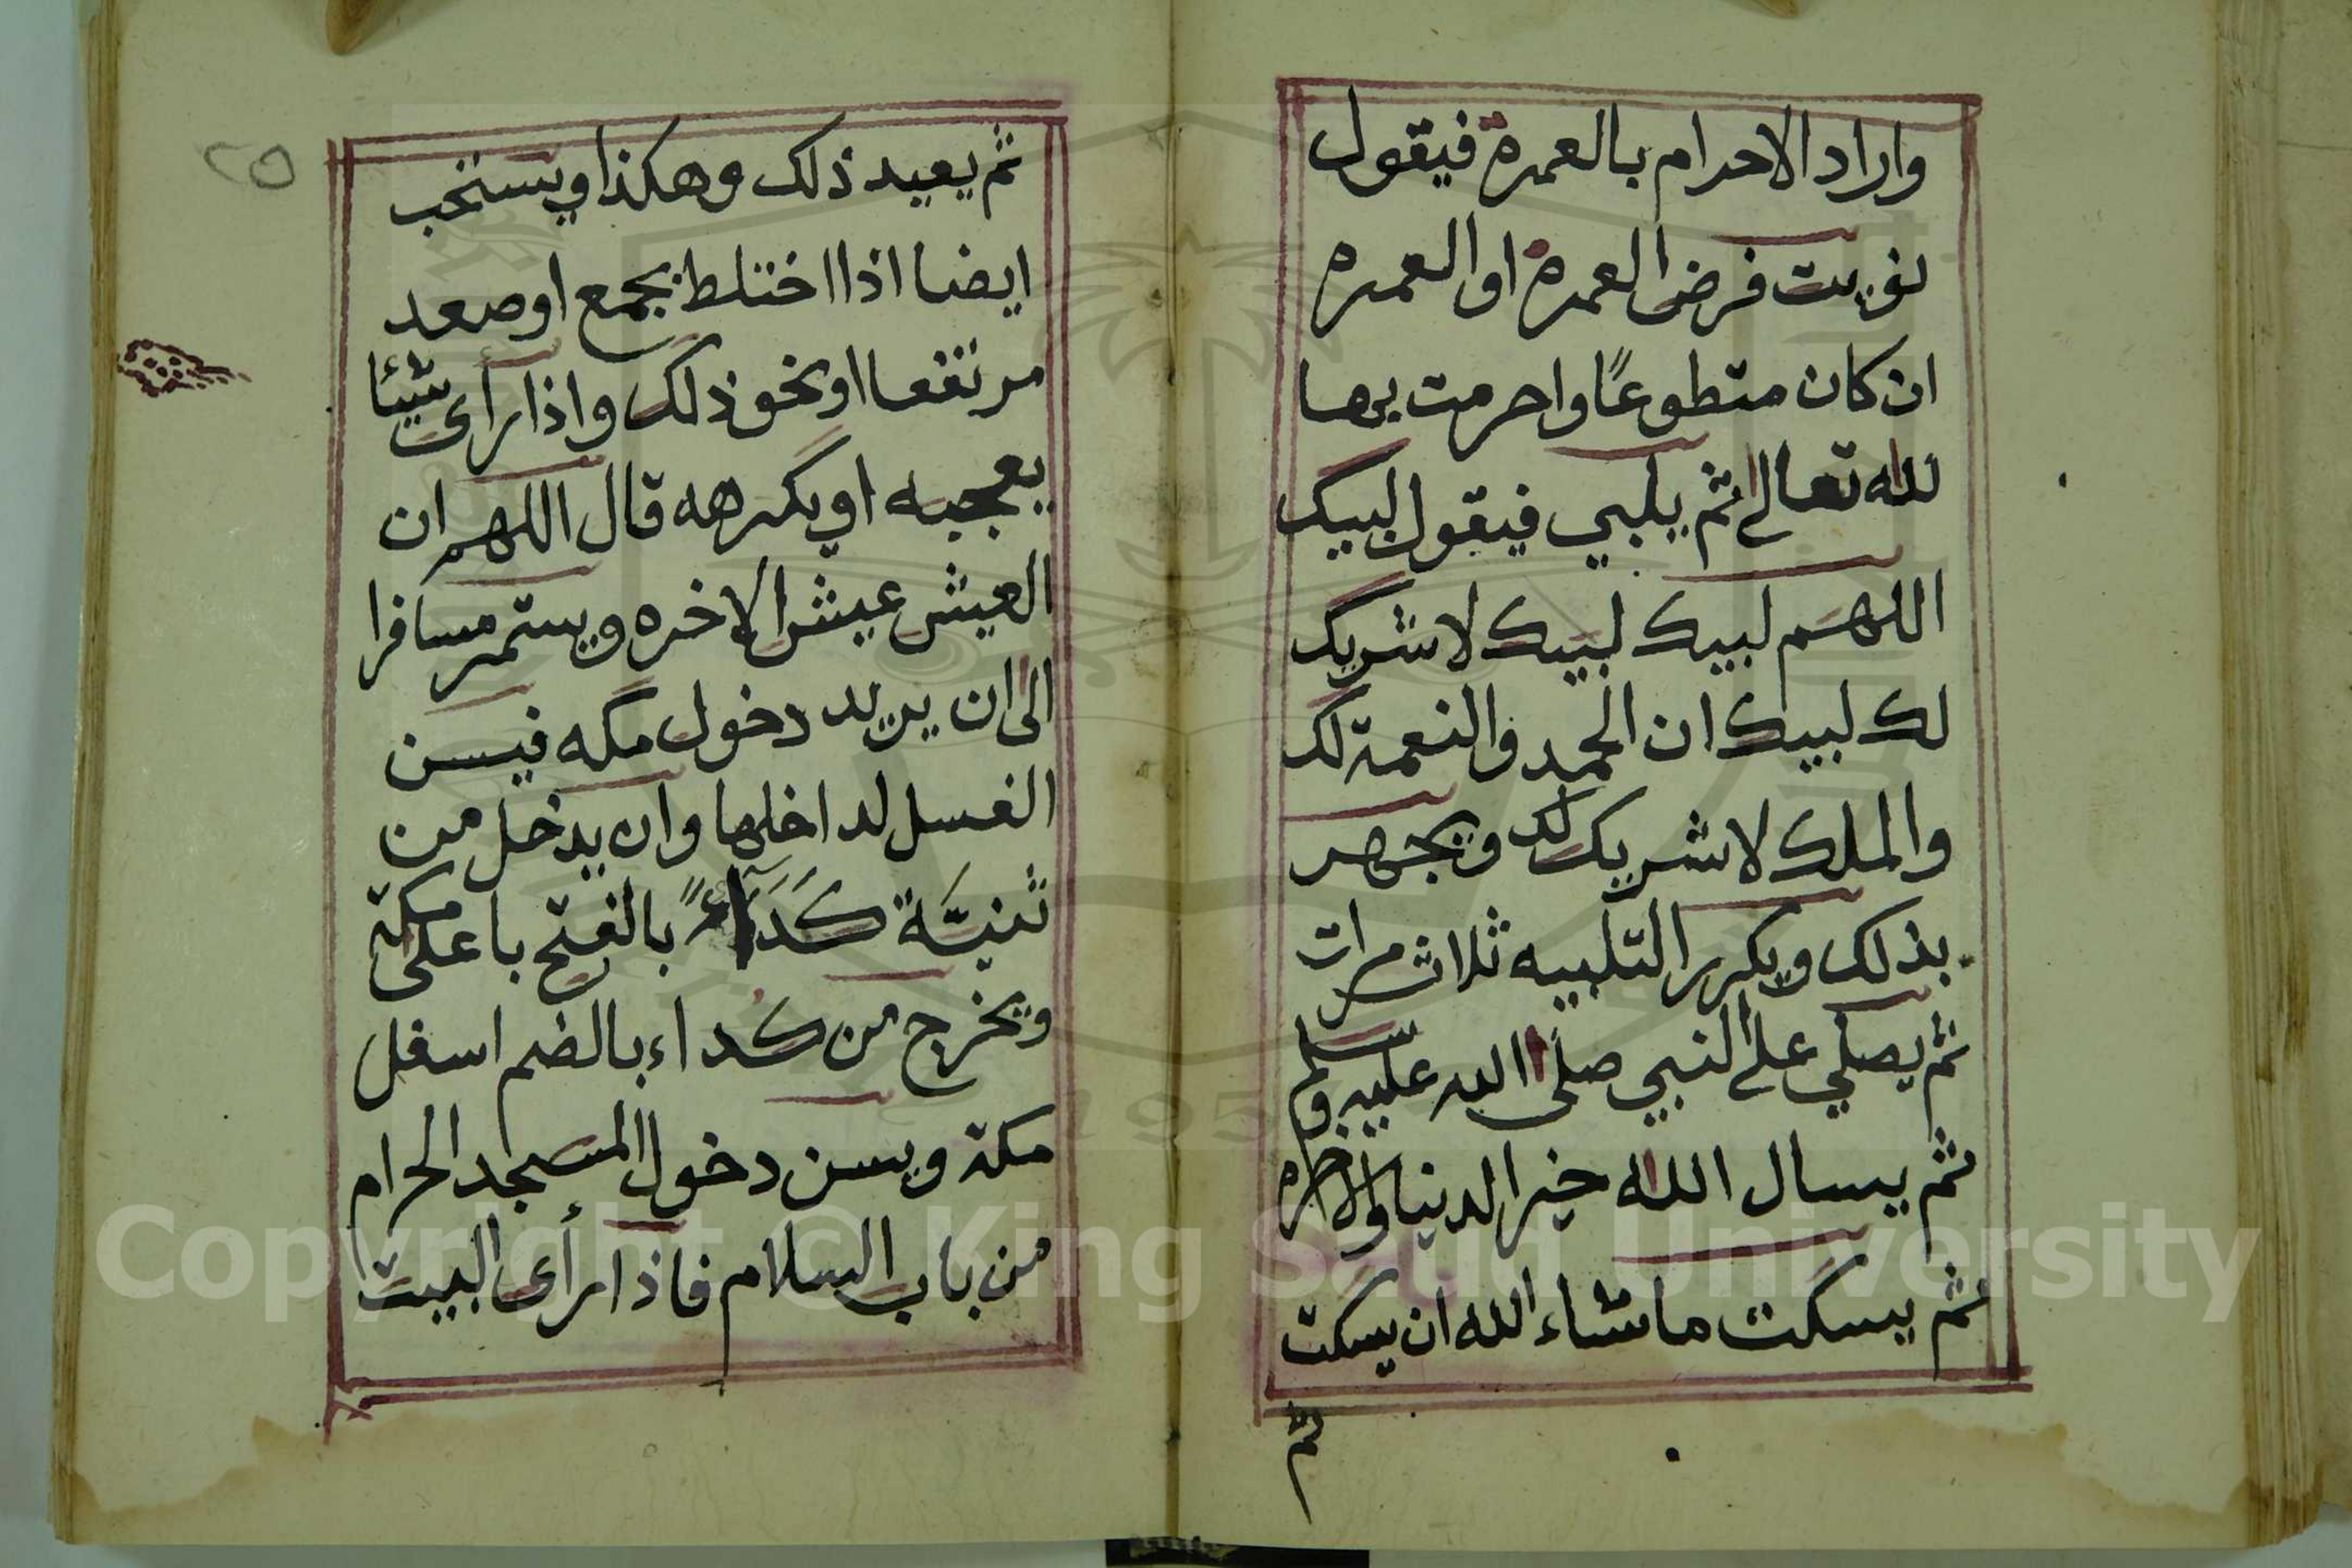 واراد الاحرام بالعمرة فيقول
نويت فرض العمرة او العمره
ان كان متطوعًا واحرمت بها
لله تعالى ثم يلبي فيقول لبيك
اللهم لبيك لبيك لا شريك
لك لبيك ان الحمد والنعمة لك
والملك لا شريك لك ويجهر
بذلك ويكرر التلبيه ثلاث مرات
ثم يصلي على النبي صلى الله عليه وسلم
ثم يسال الله خير الدنيا والاخره
ثم يسكت ما شاء الله ان يسكت
ثم
٢٥
ثم يعيد ذلك وهكذا ويستحب
ايضا اذا اختلط بجمع او صعد
مرتفعا او نحو ذلك واذا رأى شيئا
يعجبه او يكرهه قال اللهم ان
العيش عيش الاخره ويستمر مسافرا
الى ان يريد دخول مكه فيسن
الغسل لداخلها وان يدخل من
ثنيَّة كَدَآءً بالفتح باعلى مكة
ويخرج من كداء بالضم اسفل
مكة ويسن دخول المسجد الحرام
من باب السلام فاذا رأى البيت
Copyright © King Saud University
195